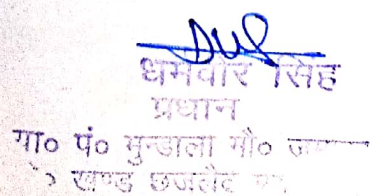 धर्मवीर सिंह
प्रधान
ग्रा० पं० मुन्डाला मौ०
खण्ड छजलैट